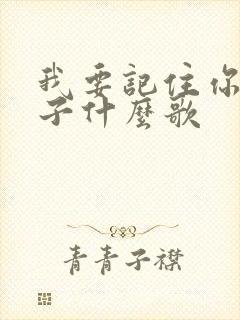 我要記住你
子什麼歌
青青子襟